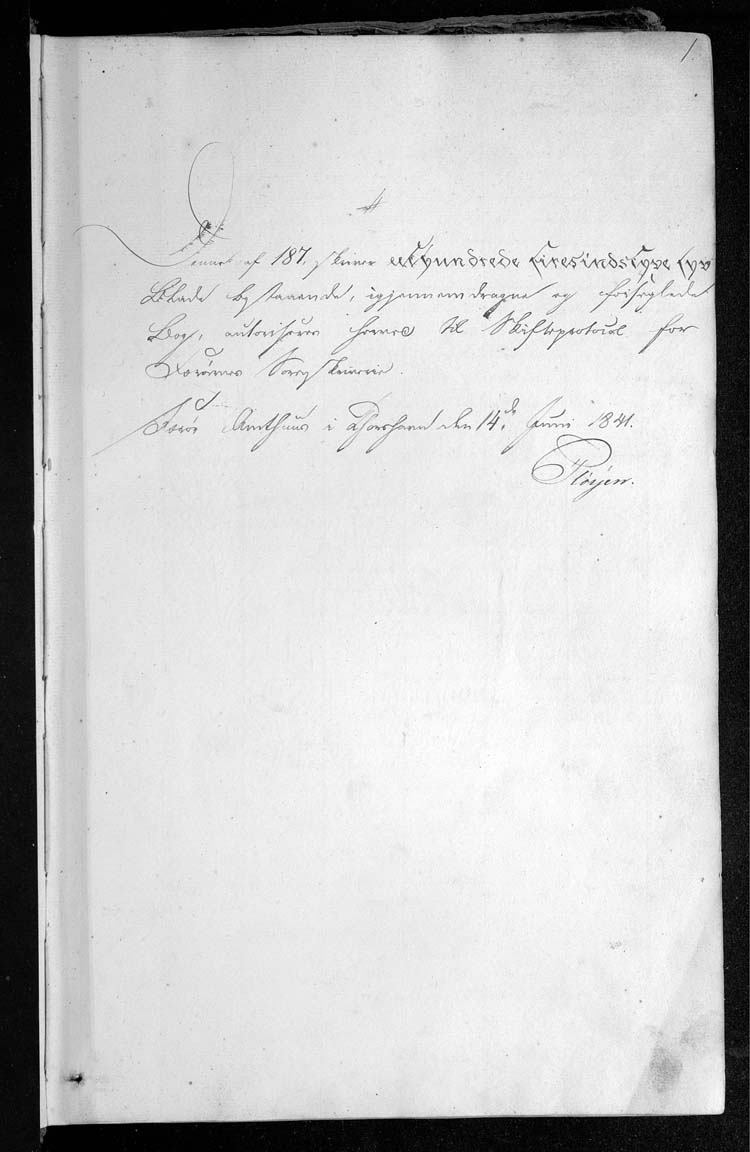 1.
Denne af 187, skriver eet Hundrede Firesindstyve Syv
Blade bestaaende, igjennemdragne og forseglede
Bog, autoriseres herved til Skifteprotocol for
Færøernes Sorenskriverie.
Færøe Amthuus i Thorshavn den 14de Juni 1841.
Pløyen.